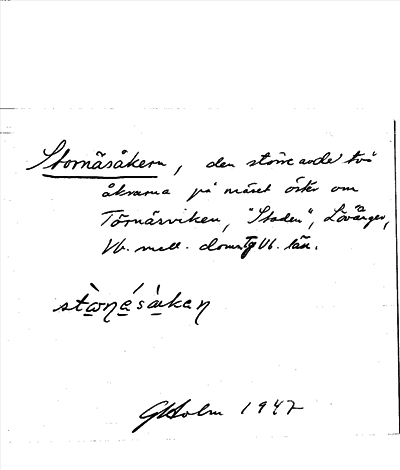 Stornäsåkern, den större av de två
åkrarna på näset öster om
Törnärsviken, "Staden", Lövånger,
Vb. mell. doms. Vb. län.
GHolm 1947